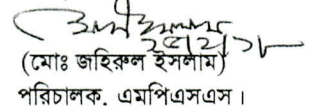 (মোঃ জহিরুল ইসলাম)
পরিচালক, এমপিএসএস।